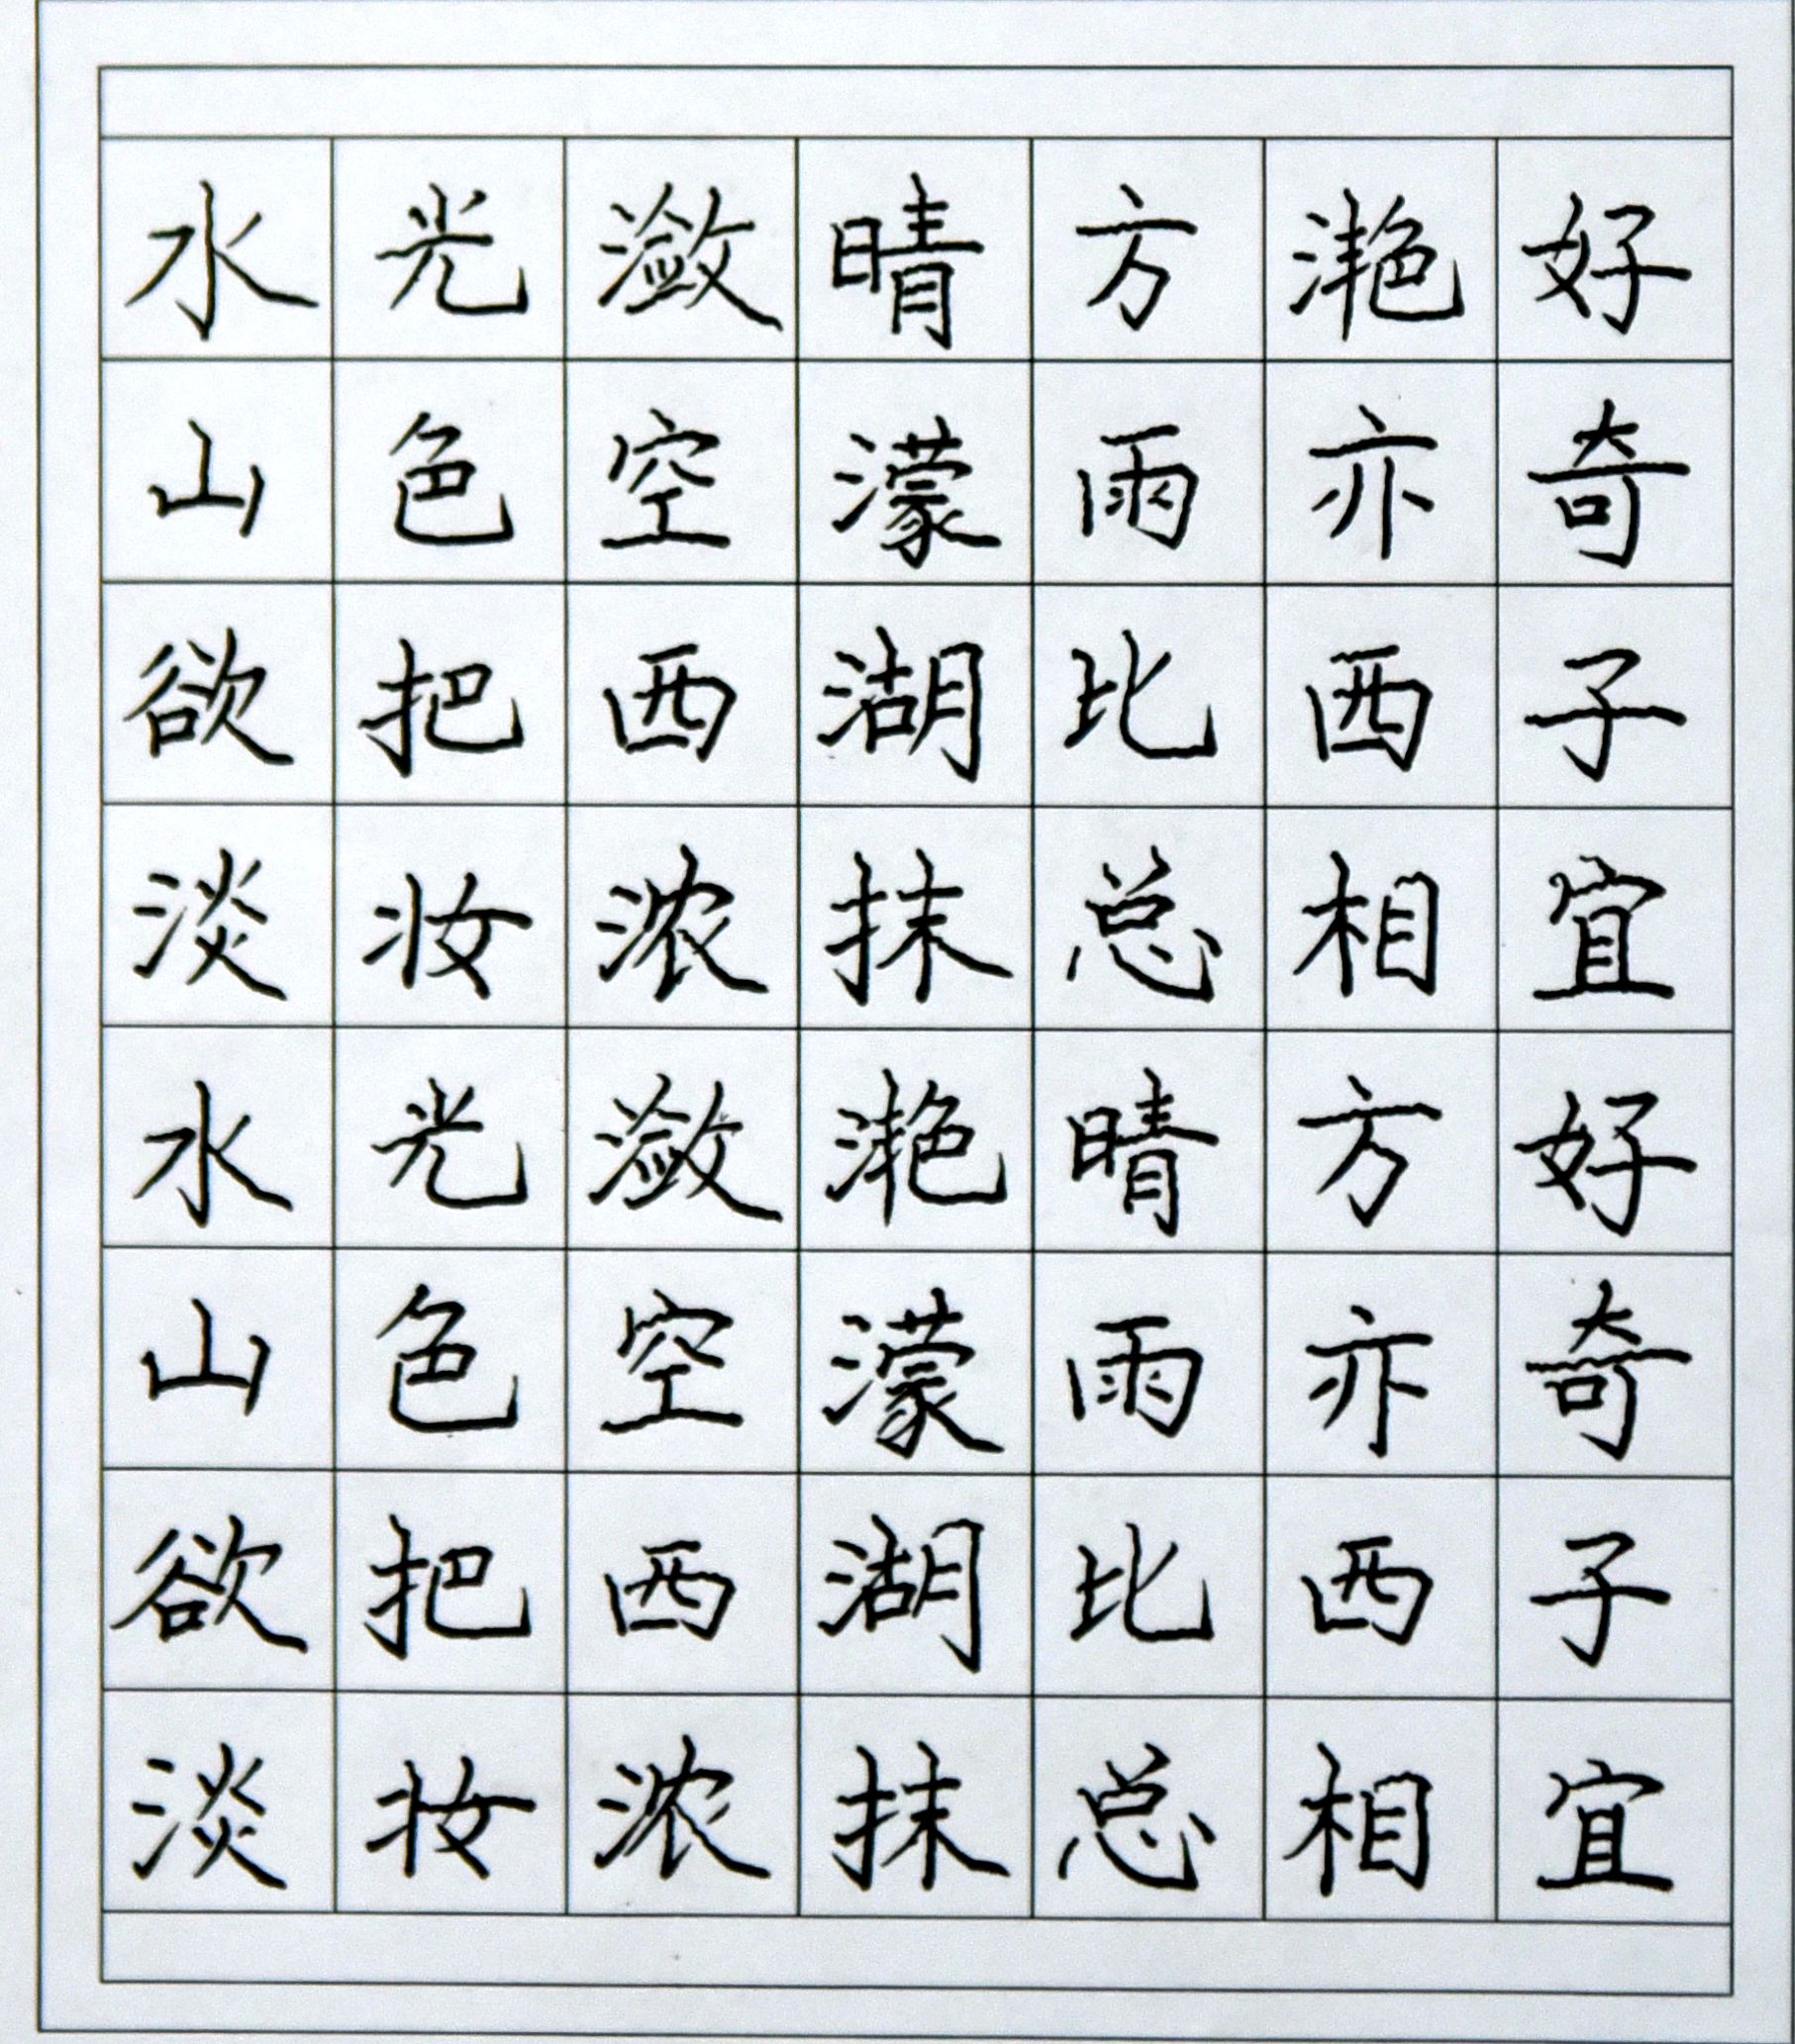 水光潋晴方滟好
山色空濛雨亦奇
欲把西湖比西子
淡妆浓抹总相宜
水光潋滟晴方好
山色空濛雨亦奇
欲把西湖比西子
淡妆浓抹总相宜